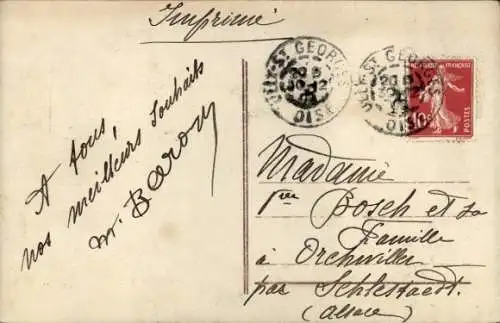 Imprimé
ULLY-ST GEORGES
OISE
ULLY-ST GEORGES
OISE
FRANÇAISE
10c
POSTES
A tous,
nos meilleurs souhaits
Baron
Madame
Vve Bosch et sa
Famille
à Orchwiller
par Schlestadt.
(Alsace)